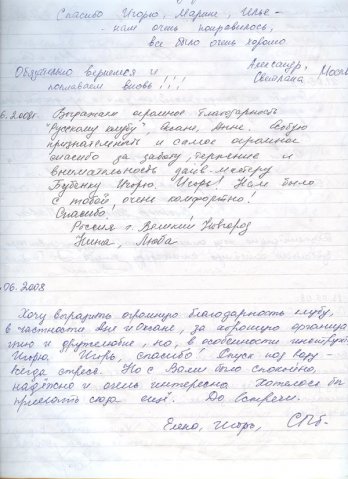 Спасибо Игорю, Марине, Илье -
- нам очень понравилось,
все было очень хорошо
Александр,
Светлана Москва
Обязательно вернемся и
поплаваем вновь!!!
6.2008г. Выражаем огромную благодарность
"Русскому клубу", Оксане, Анне. Особую
признательность и самое огромное
спасибо за заботу, терпение и
внимательность дайв-мастеру
Бубенку Игорю. Игорь! Нам было
с тобой очень комфортно!
Спасибо!
Россия г. Великий Новгород
Нина, Люба
.06.2008
Хочу выразить огромную благодарность клубу,
в частности Ане и Оксане, за хорошую организа
цию и дружелюбие, но, в особенности инструк
Игорю. Игорь, спасибо! Спуск под воду -
всегда стресс. Но с Вами было спокойно,
надёжно и очень интересно. Хотелось бы
приехать сюда ещё. До встречи.
Елена, Игорь, СПб.